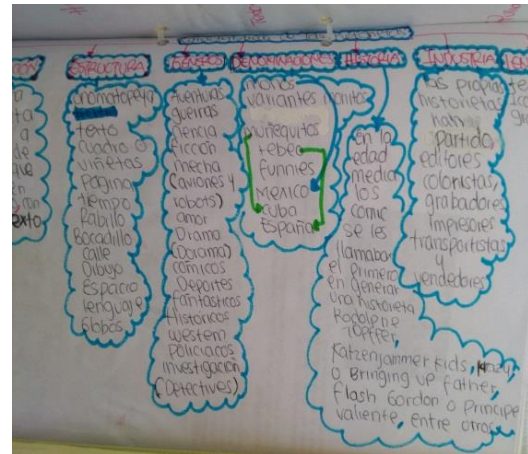 ESTRUCTURA
onomatopeya
texto
cuadro o
viñetas
pagina
tiempo
Rabillo
Bocadillo
calle
Dibujo
Espacio
lenguaje
Globos
GENEROS
Aventuras
guerras
ciencia
ficción
mecha
(aviones y
robots)
amor
Drama
(Dorama)
cómicos
Deportes
fantasticos
Historicos
western
policiacos
investigación
(Detectives)
DENOMINACIONES
monos
variantes monitos
muñequitos
tebeo
funnies
MEXICO
cuba
España
HISTORIA
En la
edad
media
los
comic
se les
llamaban
el primero
en generar
una historieta
Rodolphe
Töpffer,
Katzenjammer Kids, Krazy,
o Bringing up father,
Flash Gordon o Principe
valiente, entre otros
INDUSTRIA
los propias
historietas
partido
editores
coloristas,
grabadores
impresores
transportistas
y
vendedores